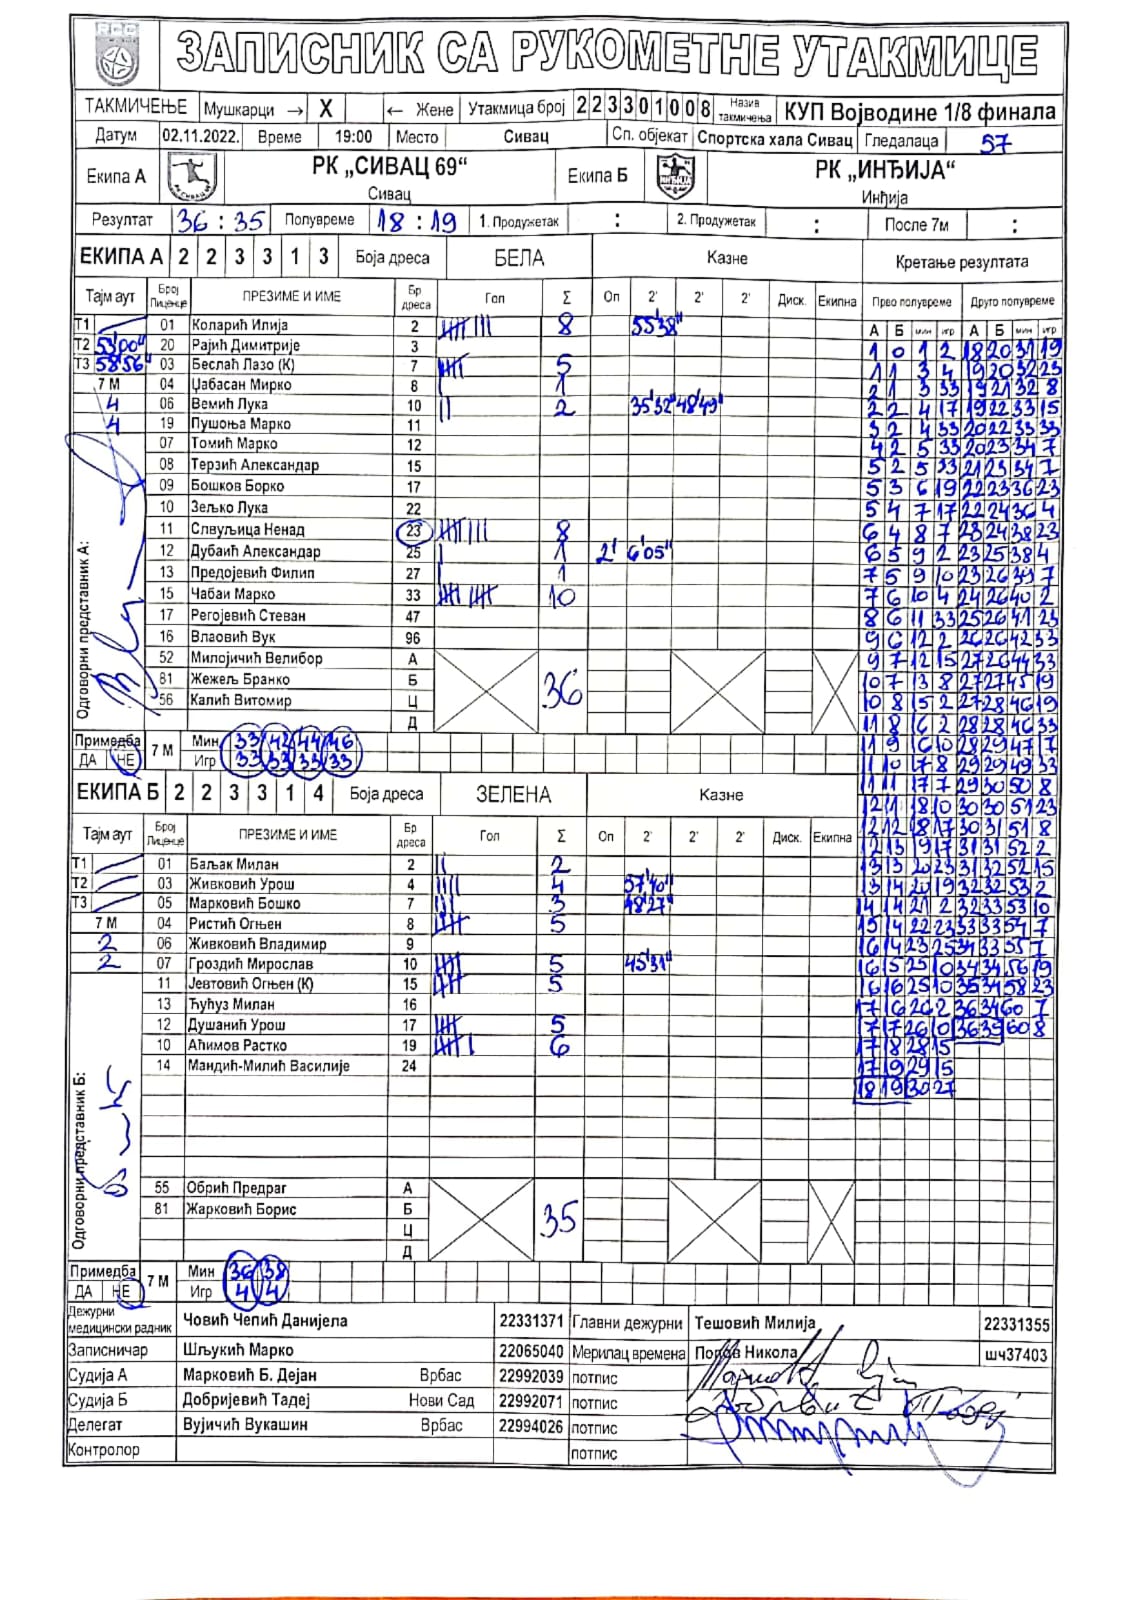 ЗАПИСНИК СА РУКОМЕТНЕ УТАКМИЦЕ
ТАКМИЧЕЊЕ Мушкарци → X ← Жене Утакмица број 223301008 Назив такмичења КУП Војводине 1/8 финала
Датум 02.11.2022. Време 19:00 Место Сивац Сп. објекат Спортска хала Сивац Гледалаца 57
Екипа А РК „СИВАЦ 69“ Екипа Б РК „ИНЂИЈА“
Сивац Инђија
Резултат 36 : 35 Полувреме 18 : 19 1. Продужетак : 2. Продужетак : После 7м :
ЕКИПА А 2 2 3 3 1 3 Боја дреса БЕЛА Казне Кретање резултата
Тајм аут Број Лиценце ПРЕЗИМЕ И ИМЕ Бр дреса Гол Σ Оп 2' 2' 2' Диск. Екипна Прво полувреме Друго полувреме
А Б мин игр А Б мин игр
Т1 01 Коларић Илија 2 8 55'38"
Т2 53'00" 20 Рајић Димитрије 3
Т3 58'56" 03 Беслаћ Лазо (К) 7 5
7 М 04 Џабасан Мирко 8 1
4 06 Вемић Лука 10 2 35'32" 48'49"
4 19 Пушоња Марко 11
07 Томић Марко 12
08 Терзић Александар 15
09 Бошков Борко 17
10 Зељко Лука 22
11 Слвуљица Ненад 23 8
12 Дубаић Александар 25 1 2' 6'05"
13 Предојевић Филип 27 1
15 Чабаи Марко 33 10
17 Регојевић Стеван 47
16 Влаовић Вук 96
52 Милојичић Велибор А
81 Жежељ Бранко Б 36
56 Калић Витомир Ц
Д
Одговорни представник А:
Примедба 7 М Мин 33 42 44 46
ДА НЕ Игр 33 33 33 33
ЕКИПА Б 2 2 3 3 1 4 Боја дреса ЗЕЛЕНА Казне
Тајм аут Број Лиценце ПРЕЗИМЕ И ИМЕ Бр дреса Гол Σ Оп 2' 2' 2' Диск. Екипна
Т1 01 Баљак Милан 2 2
Т2 03 Живковић Урош 4 4 57'40"
Т3 05 Марковић Бошко 7 3 48'27"
7 М 04 Ристић Огњен 8 5
2 06 Живковић Владимир 9
2 07 Гроздић Мирослав 10 5 45'31"
11 Јевтовић Огњен (К) 15 5
13 Ђућуз Милан 16
12 Душанић Урош 17 5
10 Аћимов Растко 19 6
14 Мандић-Милић Василије 24
Одговорни представник Б:
55 Обрић Предраг А
81 Жарковић Борис Б 35
Ц
Д
Примедба 7 М Мин 36 38
ДА НЕ Игр 4 4
1 0 1 2 18 20 31 19
1 1 3 4 19 20 32 23
2 1 3 33 19 21 32 8
2 2 4 17 19 22 33 15
3 2 4 33 20 22 33 33
4 2 5 33 20 23 34 7
5 2 5 33 21 23 34 7
5 3 6 19 22 23 36 23
5 4 7 17 22 24 36 4
6 4 8 7 23 24 38 23
6 5 9 2 23 25 38 4
7 5 9 10 23 26 39 7
7 6 10 4 24 26 40 2
8 6 11 33 25 26 41 23
9 6 12 2 26 26 42 33
9 7 12 15 27 26 44 33
10 7 13 8 27 27 45 19
10 8 15 2 27 28 46 19
11 8 16 2 28 28 46 33
11 9 16 10 28 29 47 7
11 10 17 8 29 29 49 33
11 11 17 7 29 30 50 8
12 11 18 10 30 30 51 23
12 12 18 17 30 31 51 8
12 13 19 17 31 31 52 2
13 13 20 23 31 32 52 15
13 14 20 19 32 32 53 2
14 14 21 2 32 33 53 10
15 14 22 23 33 33 54 7
16 14 23 25 34 33 55 7
16 15 25 10 34 34 56 19
16 16 25 10 35 34 58 23
17 16 26 2 36 34 60 7
17 17 26 10 36 35 60 8
17 18 28 15
17 19 29 15
18 19 30 27
Дежурни медицински радник Човић Чепић Данијела 22331371 Главни дежурни Тешовић Милија 22331355
Записничар Шљукић Марко 22065040 Мерилац времена Попов Никола шч37403
Судија А Марковић Б. Дејан Врбас 22992039 потпис
Судија Б Добријевић Тадеј Нови Сад 22992071 потпис
Делегат Вујичић Вукашин Врбас 22994026 потпис
Контролор потпис